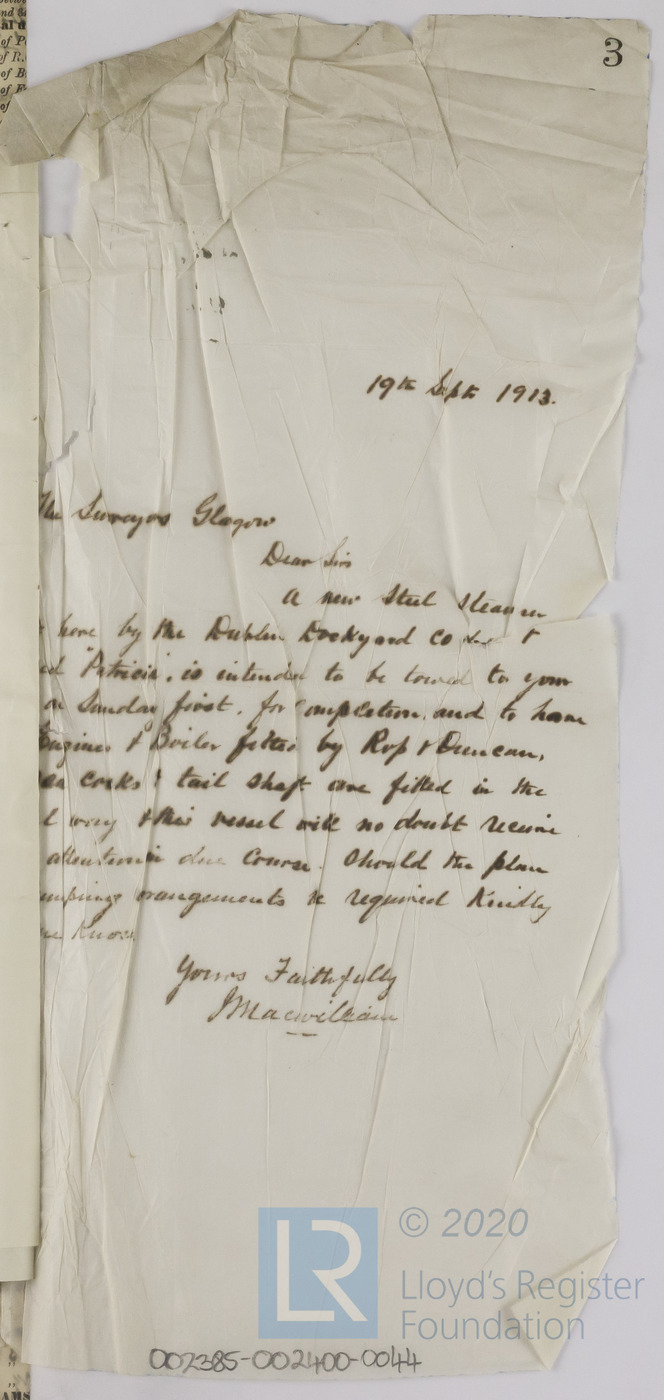 3
19th Sept 1913.
The Surveyors Glasgow
Dear Sirs
A new Steel Steamer
here by the Dublin Dockyard Co &
"Patricia", is intended to be towed to your
on Sunday first. for completion, and to have
Engines & Boiler fitted by Ross & Duncan,
cocks & tail shaft are fitted in the
way & this vessel will no doubt receive
attention in due course. Should the plan
arrangements be required Kindly
know
Yours Faithfully
J Macwilliam
© 2020
LR
Lloyd's Register
Foundation
002385-002400-0044